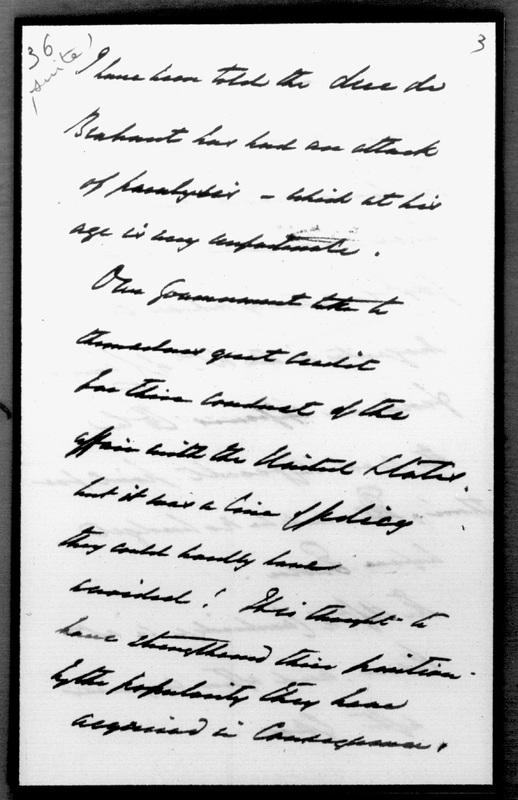 36
(suite)
3
I have been told the duc de
Brabant has had an attack
of paralysis – which at his
age is very unfortunate.
Our Government take to
themselves great credit
for their conduct of the
affair with the United States,
but it was a line of policy
they could hardly have
avoided! This thought to
have strengthened their position
by the popularity they have
acquired in Consequence.